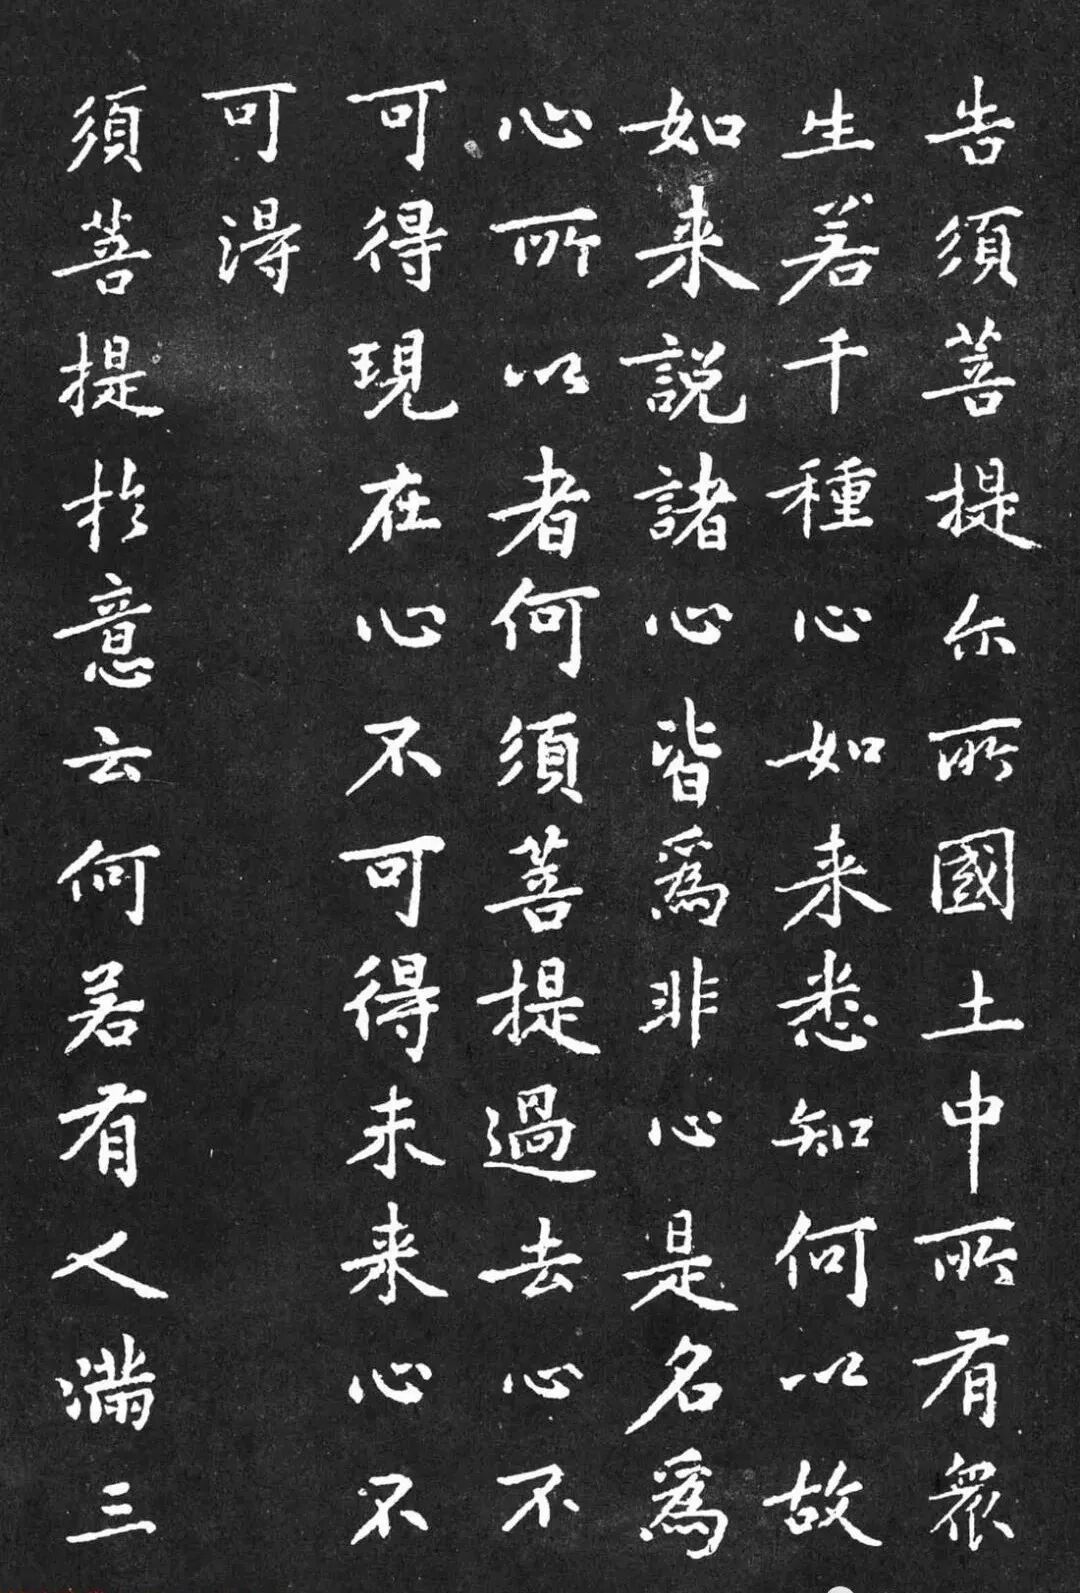 告須菩提尒所國土中所有衆
生若千種心如来悉知何以故
如来説諸心皆爲非心是名爲
心所以者何須菩提過去心不
可得現在心不可得未来心不
可得
須菩提於意云何若有人滿三